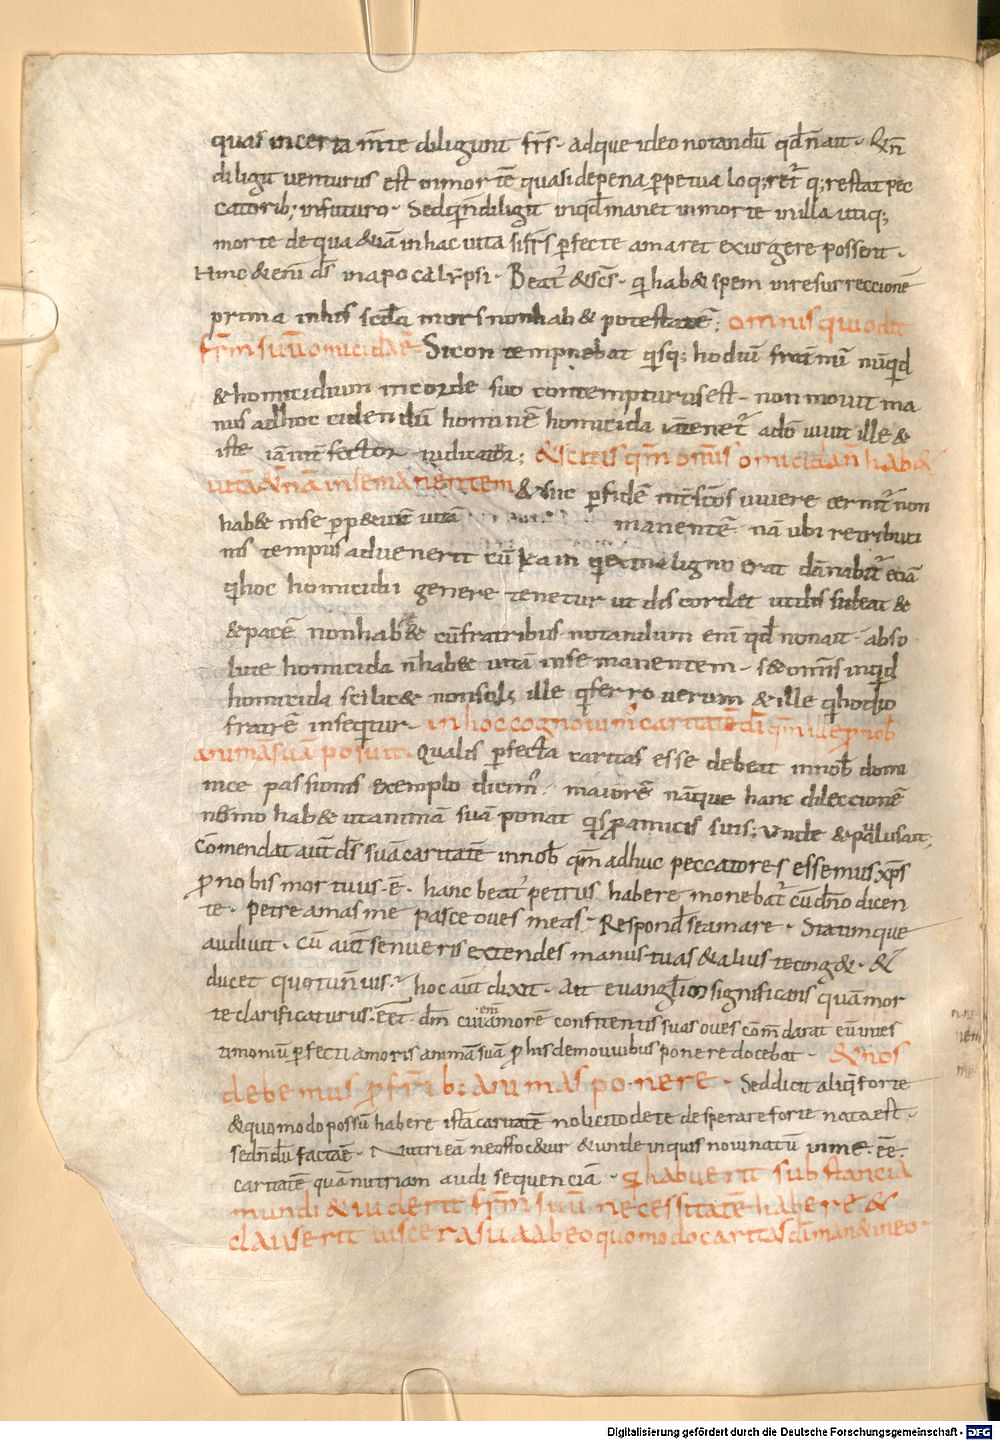 quas incerta m̅te diligunt fr̅s· adque ideo notandu̅ qd̅ n̅ ait· Qui n̅
diligit venturus est in morte̅ quasi de pena perpetua loq;ret̅ q; restat pec
catorib; in futuro· Sed qui n̅ diligit inqd̅ manet in morte in illa utiq;
morte de qua & ia̅ in hac uita si fr̅s perfecte amaret exurgere possent·
Hinc & eni̅ ds̅ in apocalypsi· Beat' & sc̅s· qi hab& spem in resurreccione̅
prima in his scd̅a mors non hab& potestate̅; omnis qui odit
fr̅m suu̅ omicida e̅· Si contempnebat qisq; hodiu̅ frat̅nu̅ nu̅qid
& homicidium in corde suo contempturus est· non mouit ma
nus ad hoc cidendu̅ homine̅ homicida ia̅ tenet̅ a do̅ uiuit ille &
iste ia̅ int̅fector iudicat̅; & scitis qm̅ om̅is omicida n̅ hab&
uita̅ &n̅a̅ in se manentem & hic p fide̅ int̅ sc̅os uiuere cernit̅ non
hab& in se perp&ua̅ uita̅ manente̅· na̅ ubi retributi
nis tempus aduenerit cu̅ kain qi ex maligno erat da̅nabit̅ ecia̅
qi hoc homicidii genere tenetur ut discordet ut dissideat &
& pace̅ non hab& cu̅ fratribus notandum eni̅ qd̅ non ait· abso
lute homicida n̅ hab& uita̅ in se manentem· s& omnis inqid
homicida scilic& non sol; ille qi ferro uerum & ille qi hodio
fratre̅ inseqitur· in hoc cognouim' caritate̅ di̅ qm̅ ille p nob̅
anima̅ sua̅ posuit· Qualis perfecta caritas esse debeat in nob̅ domi
nice passionis exemplo dicim'· maiore̅ na̅que hanc dileccione̅
nemo hab& ut anima̅ sua̅ ponat qis p amicis suis; Unde & paulus ait;
Co̅mendat aut̅ ds̅ sua̅ caritate̅ in nob̅ qm̅ adhuc peccatores essemus xp̅s
p nobis mortuus· e̅· hanc beat' petrus habere moneba̅t cu̅ dn̅o dicen
te· petre amas me pasce oues meas· Respond̅ se amare· Statimque
audiuit· Cu̅ aut̅ senueris extendes manus tuas & alius te cing&· &
ducet quo tu n̅ uis· hoc aut̅ dixit· Ait euanglion significans qua mor
te clarificaturus· e̅et̅· dm̅ cui eni̅ amore̅ confitentis suas oues com̅darat eu̅ in tes
timoniu̅ perfecti amoris anima̅ sua̅ p his de mouibus ponere docebat· & nos
debemus p fr̅ib: animas ponere· Sed dicit aliqis forte
& quomodo possu̅ habere ista̅ caritate̅ noli cito de te desperare forte nata est·
sed nd̅u̅ facta e̅· Nutri ea̅ ne offoc&ur & unde inquis noui natu̅ in me· e̅e̅·
caritate̅ qua̅ nutriam audi sequencia̅· Qi habuerit substancia
mundi & uiderit fr̅m suu̅ necessitate̅ habere &
clauserit uiscera sua ab eo quomodo caritas di̅ man& in eo·
Digitalisierung gefördert durch die Deutsche Forschungsgemeinschaft - DFG